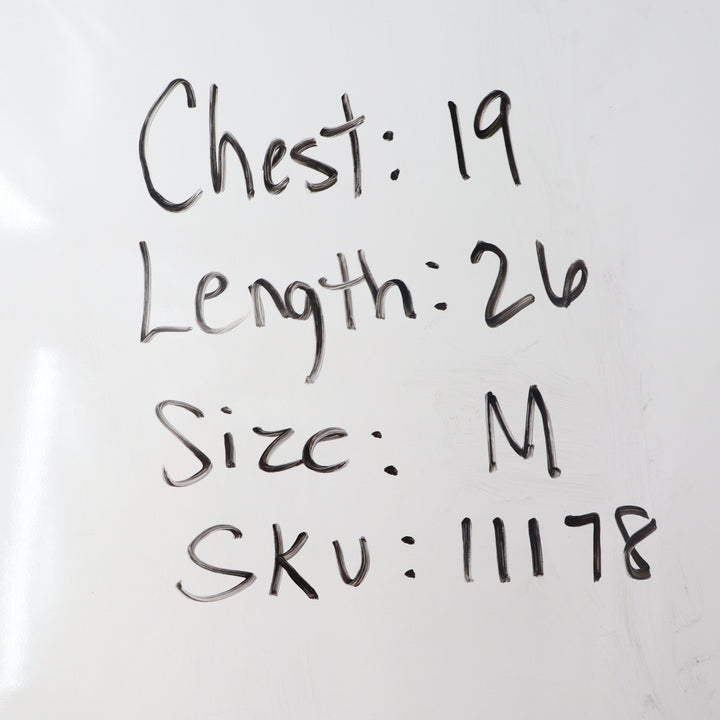 Chest: 19
Length: 26
Size: M
SKU: 11178